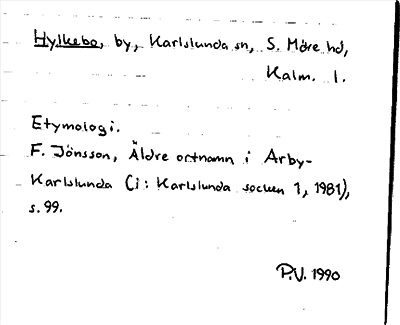 Hylkebo, by, Karlslunda sn, S. Möre hd,
Kalm. l.
Etymologi.
F. Jönsson, Äldre ortnamn i Arby-
Karlslunda (i: Karlslunda socken 1, 1981),
s. 99.
P.V. 1990